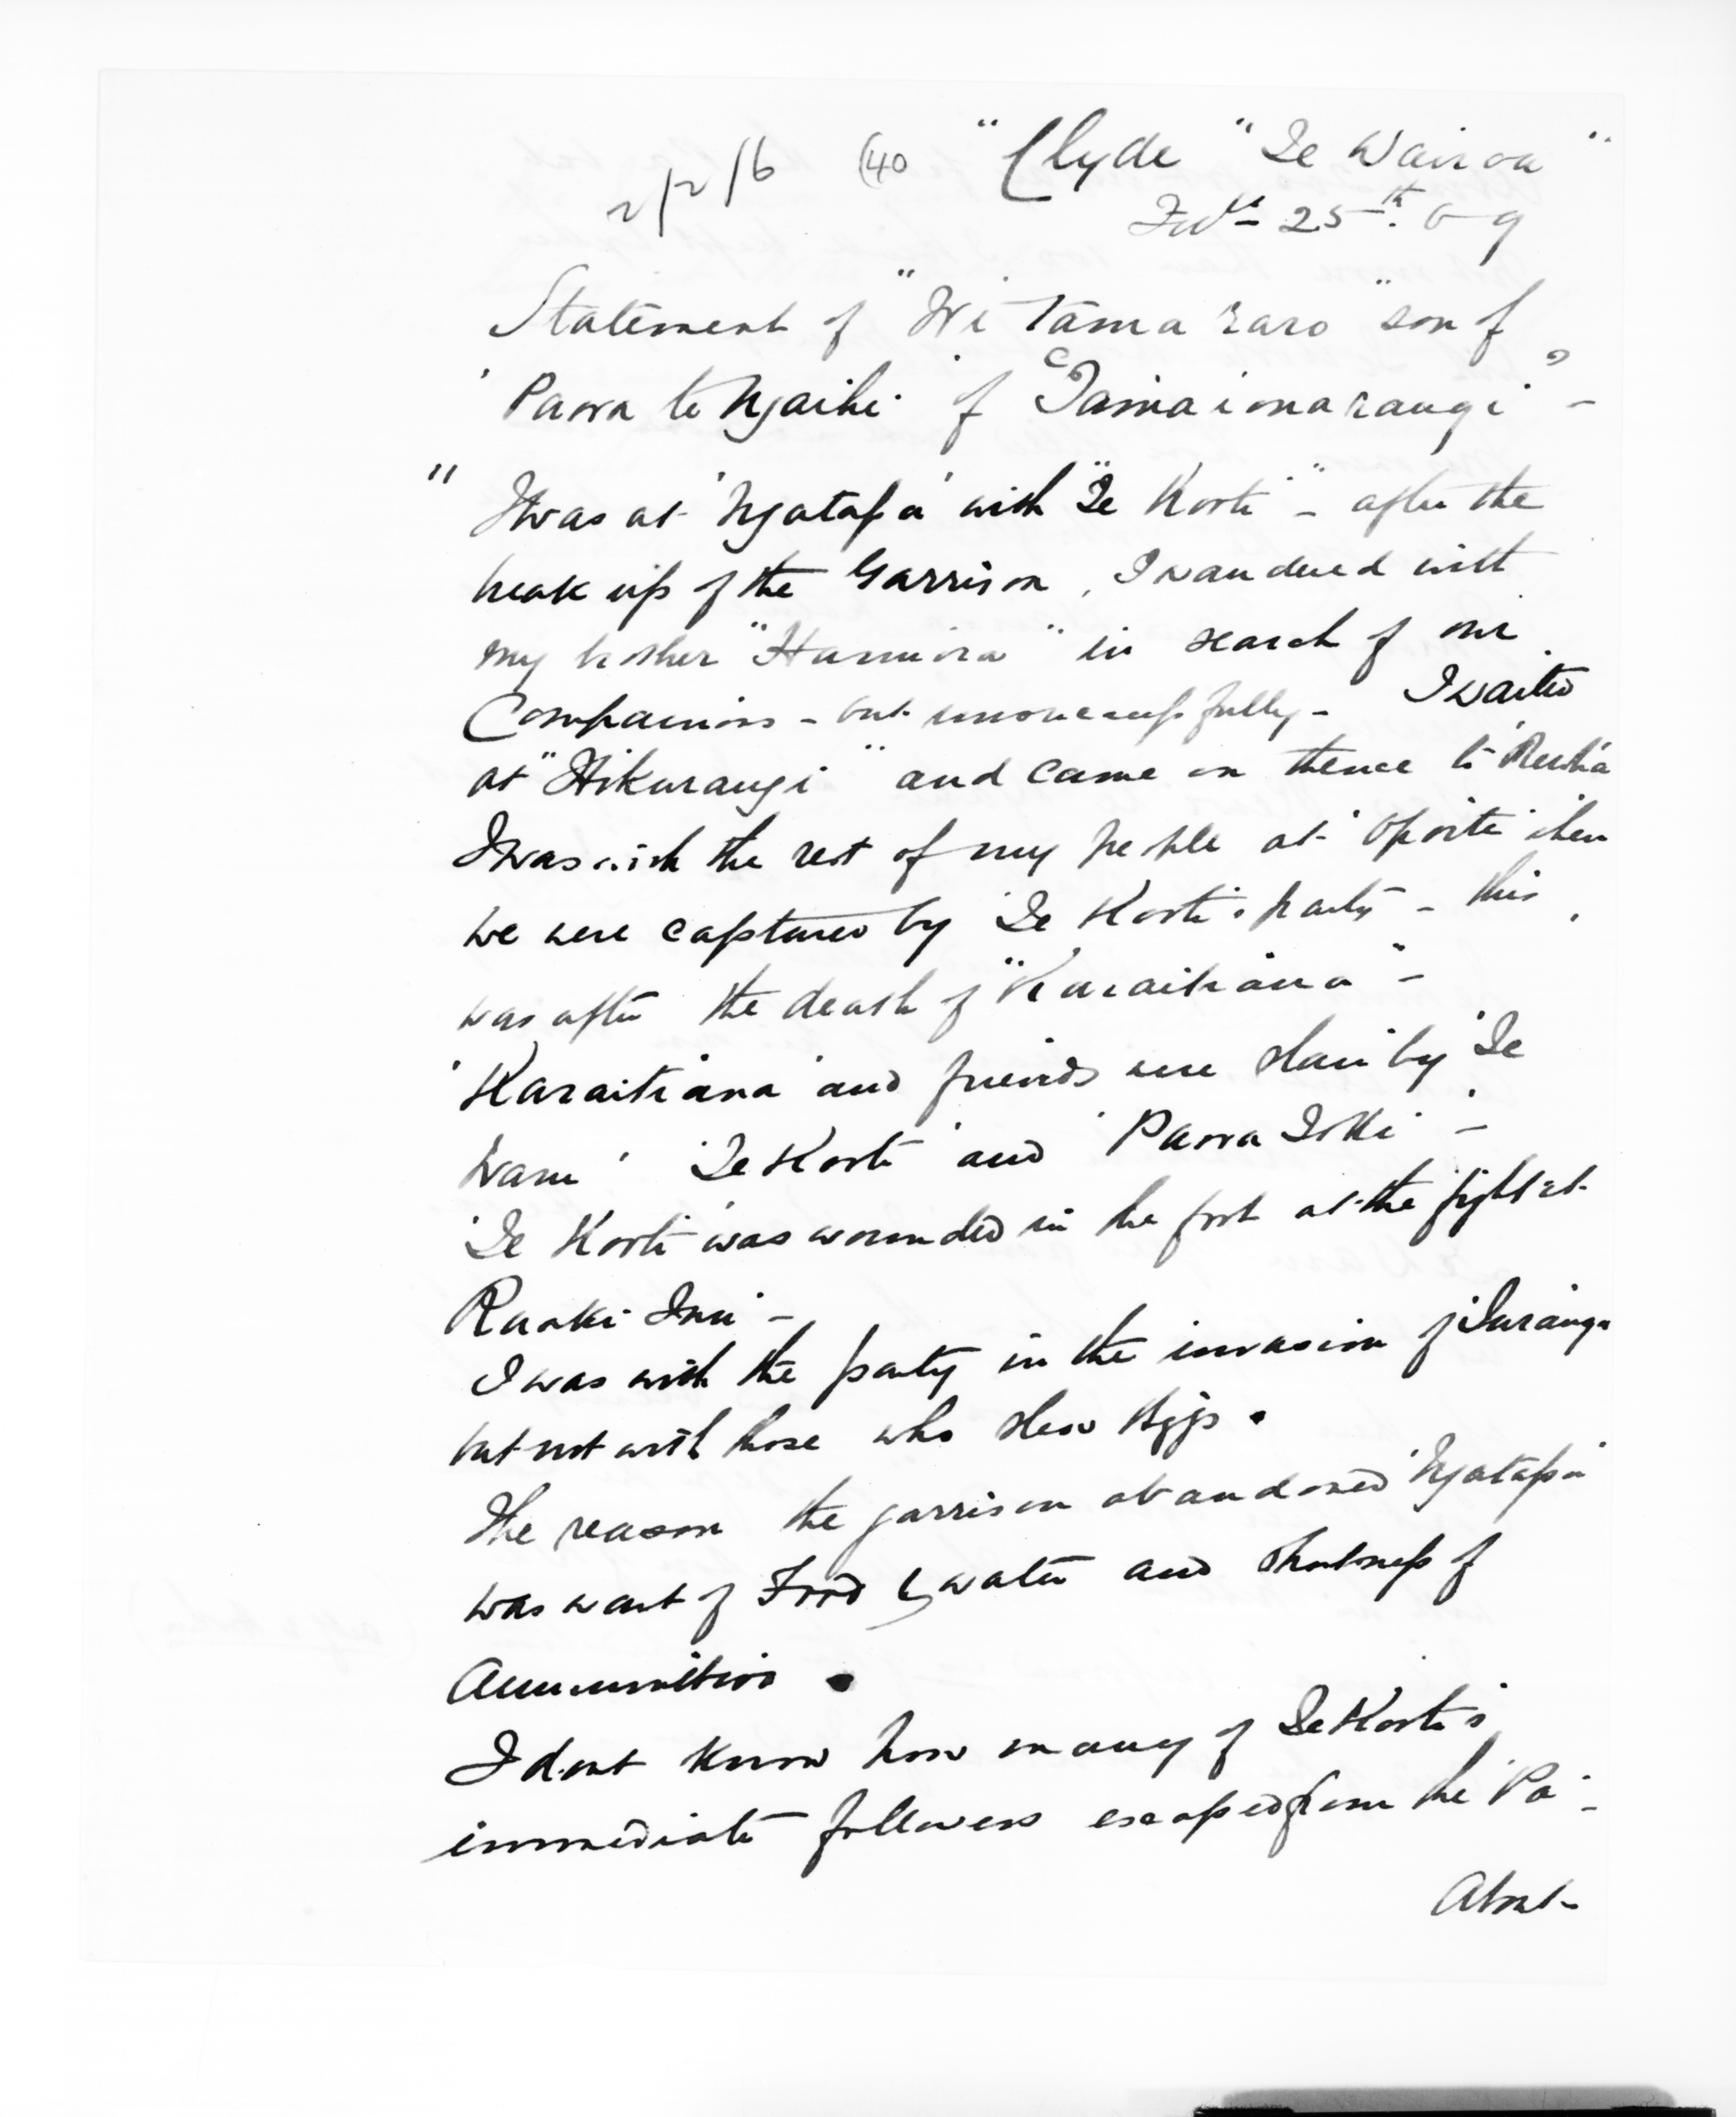 2/2/6 (40 "Clyde" "Te Wairoa"
Feb 25th. 69
Statement of "Wi Tamararo" son of
'Paora te Ngaihi' of "Tamaionarangi" -
" I was at 'Ngatapa' with "Te Kooti" - after the
break up of the Garrison, I wandered with
my brother "Hamiora" in search of our
Companions - but unsuccessfully - I waited
at "Hikurangi" and came on thence to
I was with the rest of my people at 'Opoiti' when
we were captured by 'Te Kooti's party - this
was after the death of "Karaitiana" -
'Karaitiana' and friends were slain by 'Te
Waru' 'Te Kooti' and 'Paora Toki' -
'Te Kooti' was wounded in the foot at the fight at
Ruaki Turi' -
I was with the party in the invasion of 'Turanga
but not with those who slew Biggs.
The reason the garrison abandoned 'Ngatapa'
was want of Food & water and shortness of
Ammunition.
I dont know how many of Te Kooti's
immediate followers escaped from the 'Pa' -
About